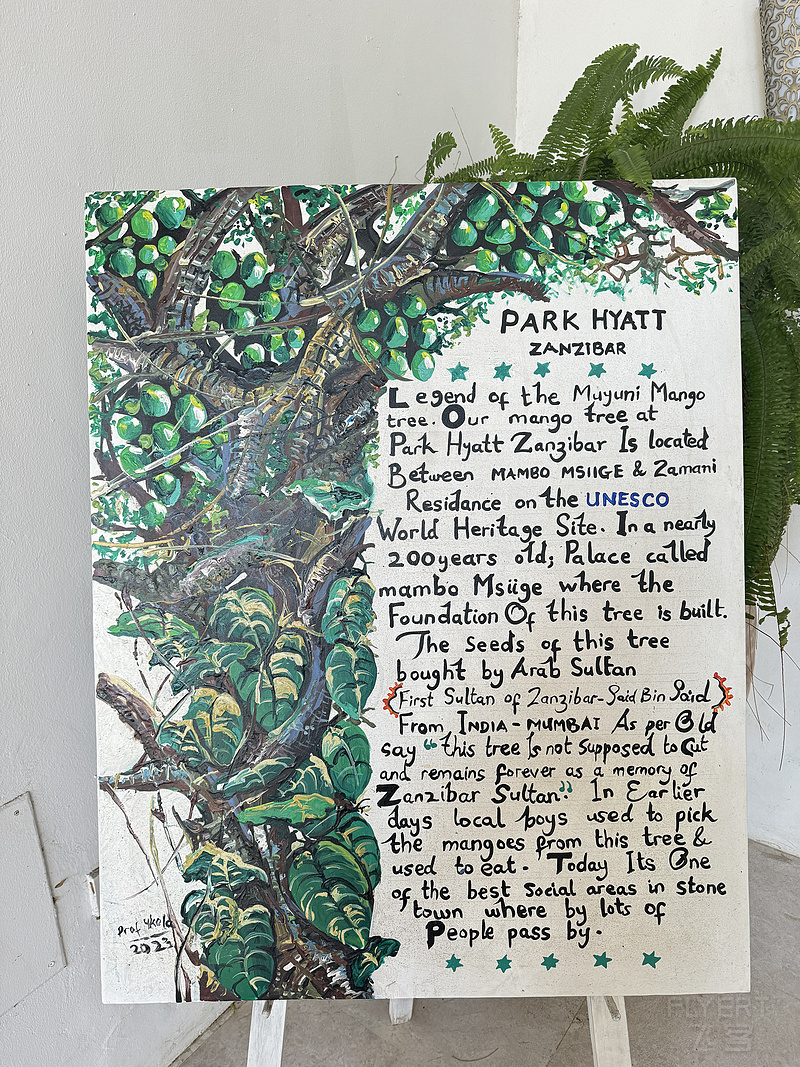 PARK HYATT
ZANZIBAR
Legend of the Muyuni Mango
tree. Our mango tree at
Park Hyatt Zanzibar Is located
Between MAMBO MSIIGE & Zamani
Residance on the UNESCO
World Heritage Site. In a nearly
200years old, Palace called
mambo Msiige where the
Foundation Of this tree is built.
The seeds of this tree
bought by Arab Sultan
(First Sultan of Zanzibar-Said Bin Said)
From INDIA - MUMBAI As per Old
say "this tree Is not supposed to Cut
and remains forever as a memory of
Zanzibar Sultan". In Earlier
days local boys used to pick
the mangoes from this tree &
used to eat. Today Its One
of the best social areas in stone
town where by lots of
People pass by.
2023
FLYERT